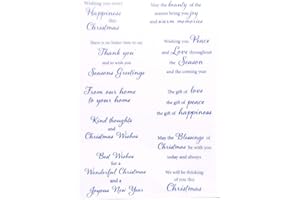 Wishing you every
Happiness
this
Christmas
There is no better time to say
Thank you
and to wish you
Seasons Greetings
From our home
to your home
Kind thoughts
and
Christmas Wishes
Best Wishes
for a
Wonderful Christmas
and a
Joyous New Year
May the beauty of the
season bring you joy
and warm memories
Wishing you Peace
and Love throughout
the Season
and the coming year
The gift of love
the gift of peace
the gift of happiness
May the Blessings of
Christmas be with you
today and always
We will be thinking
of you this
Christmas